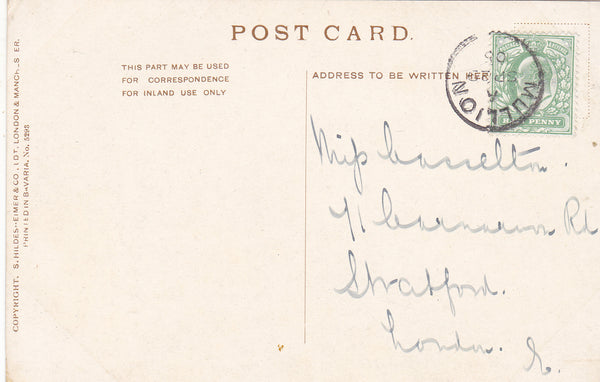 POST CARD.
THIS PART MAY BE USED
FOR CORRESPONDENCE
FOR INLAND USE ONLY
ADDRESS TO BE WRITTEN HERE
MULLION
HALF PENNY
Miss Casselton.
71 Carnarvon Rd
Stratford.
London.
E.
COPYRIGHT. S. HILDESHEIMER & CO., LDT. LONDON & MANCHESTER.
PRINTED IN BAVARIA. No. 5298